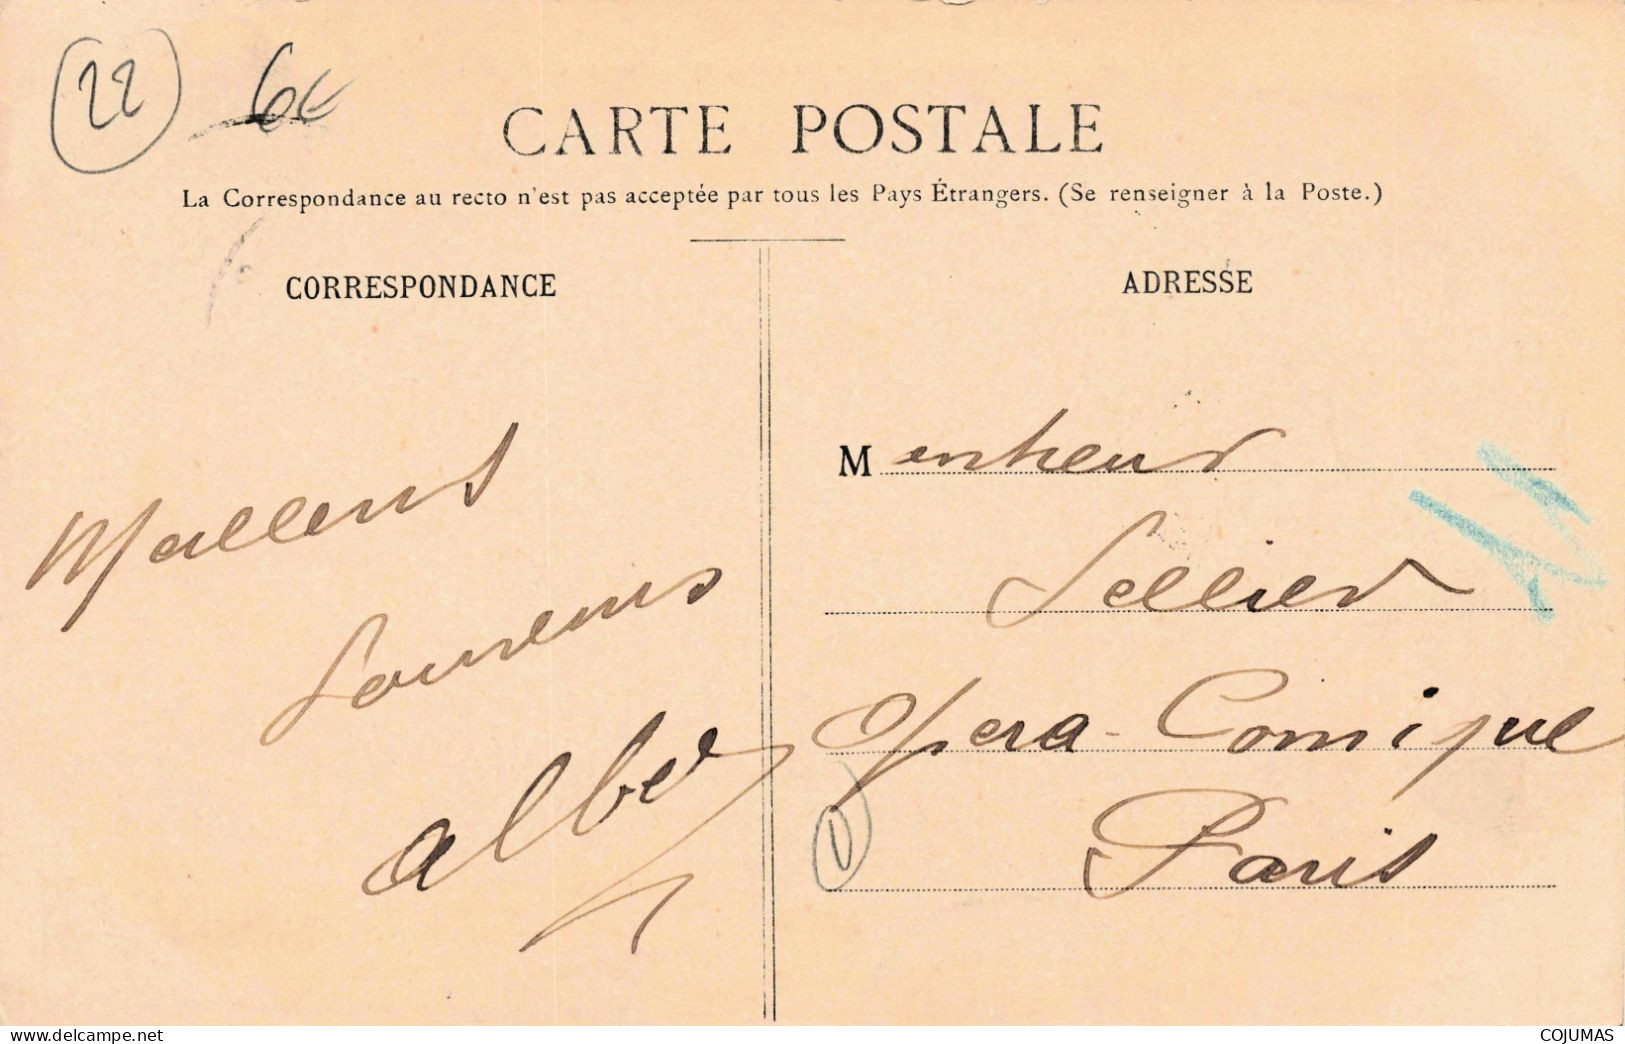 22
6€
CARTE POSTALE
La Correspondance au recto n'est pas acceptée par tous les Pays Étrangers. (Se renseigner à la Poste.)
CORRESPONDANCE
ADRESSE
Meilleurs
Souvenirs
Albe
Monsieur
Sellier
Opera-Comique
Paris
www.delcampe.net
COJUMAS